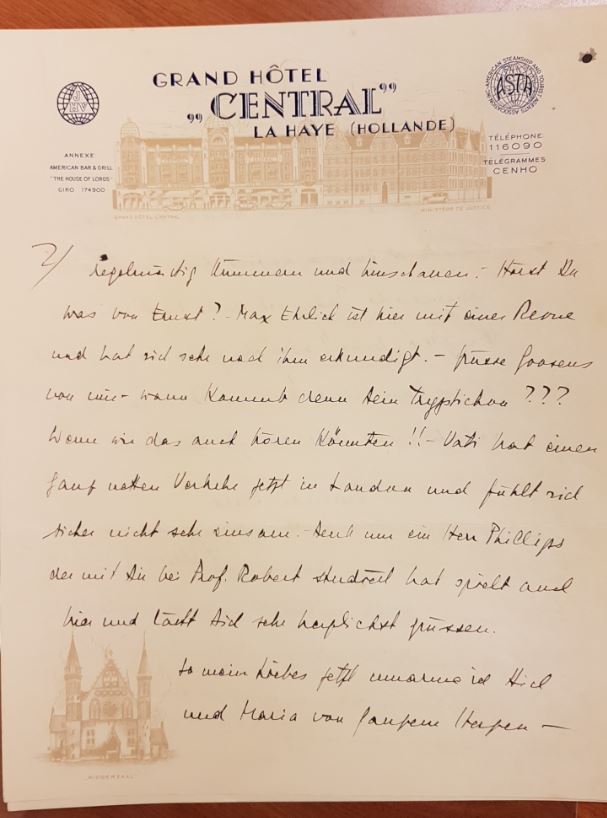 GRAND HÔTEL
„CENTRAL”
LA HAYE (HOLLANDE)
JHV
AMERICAN STEAMSHIP AND TOURIST AGENTS ASSOCIATION
ASTA
ANNEXE
AMERICAN BAR & GRILL
"THE HOUSE OF LORDS"
GIRO 174900
TÉLÉPHONE
116090
TÉLÉGRAMMES
CENHO
GRAND HÔTEL CENTRAL
MINISTÈRE DE JUSTICE
2/ regelmässig kümmern und hinschauen.- Hörst Du
was von Ernst? - Max Ehrlich ist hier mit einer Revue
und hat sich sehr nach ihm erkundigt. - Grüsse Goosens
von mir - wann kommt denn Dein Tryptichon ???
Wenn wir das auch hören könnten !! - Vati hat einen
ganz netten Verkehr jetzt in London und fühlt sich
sicher nicht sehr einsam. - Denk nur ein Herr Phillips
der mit Dir bei Prof. Robert studiert hat spielt auch
hier und lässt Dich sehr herzlichst grüssen.
So mein Liebes jetzt umarme ich Dich
und Maria von ganzem Herzen -
„RIDDERZAAL”